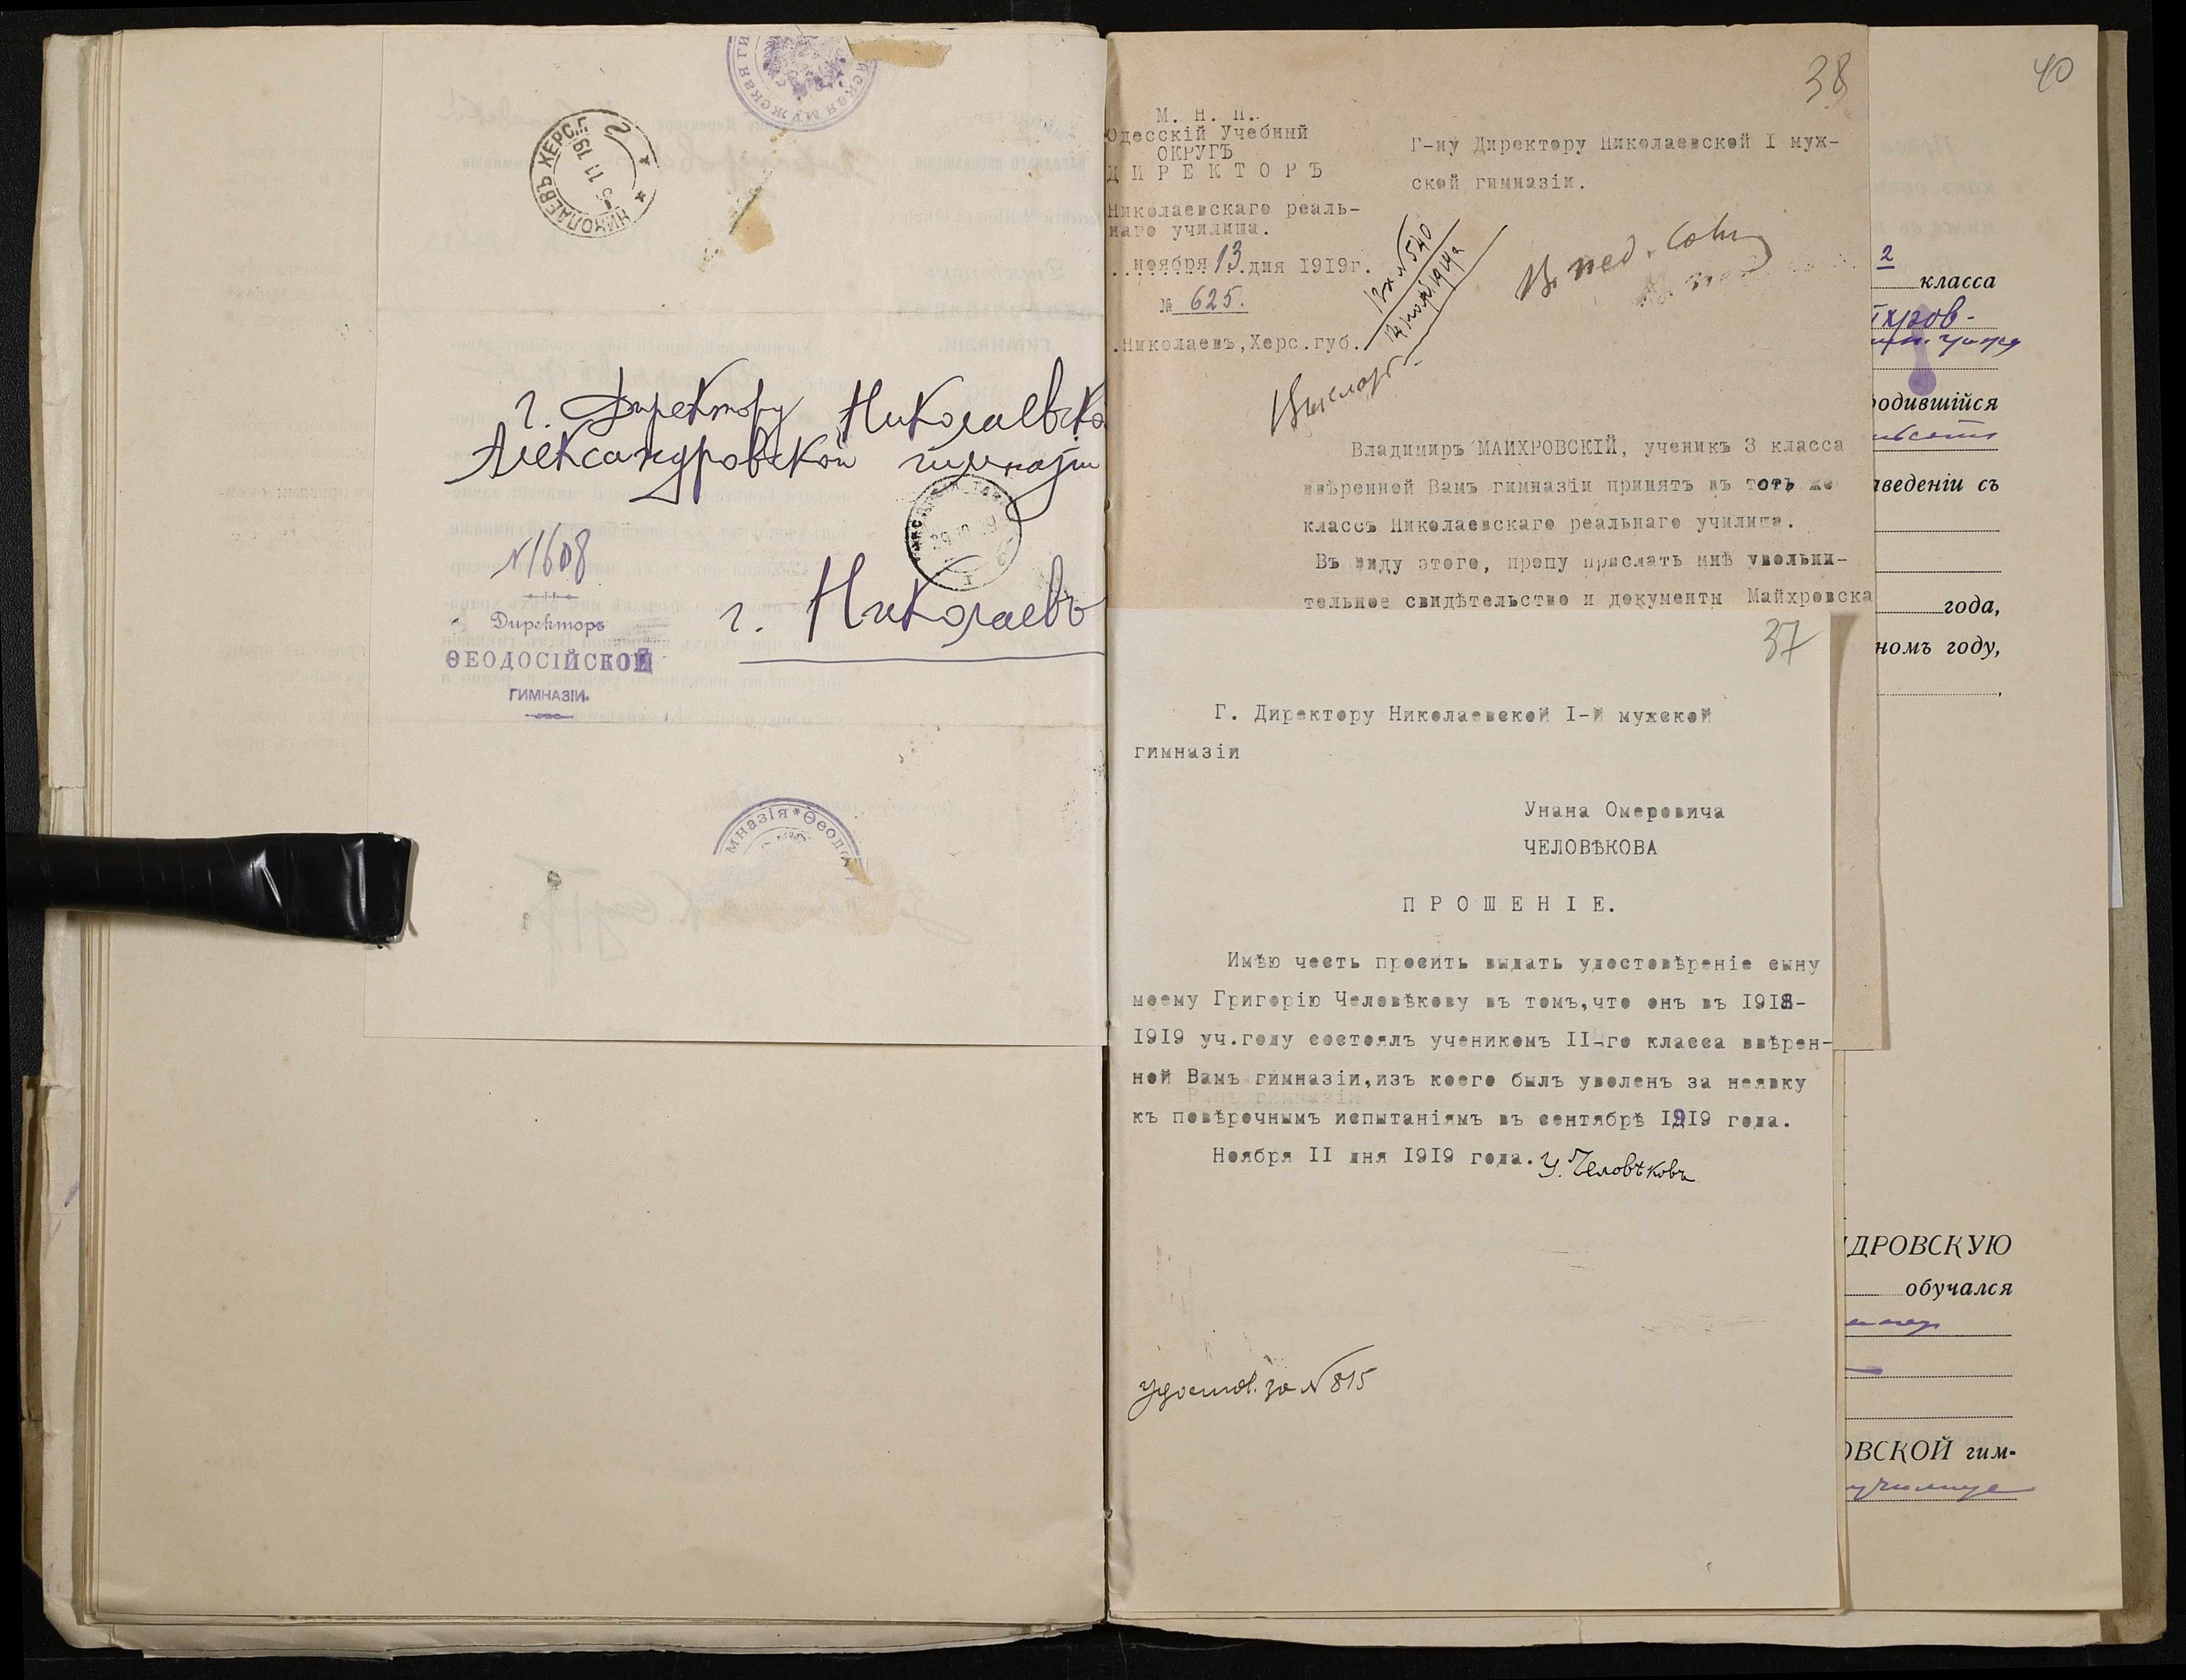 НИКОЛАЕВЪ ХЕРС.Г.
5 11 19
г. Директору Николаевско
Александровской гимназіи
№1608
Директоръ
ѲЕОДОСІЙСКОЙ
ГИМНАЗІИ.
г. Николаевъ
мназія * Ѳеодо
38
М. Н. П.
Одесскій Учебный
ОКРУГЪ
ДИРЕКТОРЪ
Николаевскаго реаль-
наго училища.
ноября 13 дня 1919г.
№ 625.
.Николаевъ,Херс.губ.
Г-ну Директору Николаевской I муж-
ской гимназіи.
Вх №540
14 нояб. 1919г
В пед. Сов
Владимиръ МАЙХРОВСКІЙ, ученикъ 3 класса
ввѣренной Вамъ гимназіи принятъ въ тотъ же
классъ Николаевскаго реальнаго училища.
Въ виду этого, прошу прислать мнѣ увольни-
тельное свидѣтельство и документы Майхровска
37
Г. Директору Николаевской I-й мужской
гимназіи
Унана Омеровича
ЧЕЛОВѢКОВА
ПРОШЕНІЕ.
Имѣю честь просить выдать удостовѣреніе сыну
моему Григорію Человѣкову въ томъ,что онъ въ 1918-
1919 уч.году состоялъ ученикомъ II-го класса ввѣрен-
ной Вамъ гимназіи,изъ коего былъ уволенъ за неявку
къ повѣрочнымъ испытаніямъ въ сентябрѣ 1919 года.
Ноября II дня 1919 года. У. Человѣковъ
Удостов. за №815
40
2
класса
одившійся
аведеніи съ
года,
номъ году,
ДРОВСКУЮ
обучался
ОВСКОЙ гим-
училище